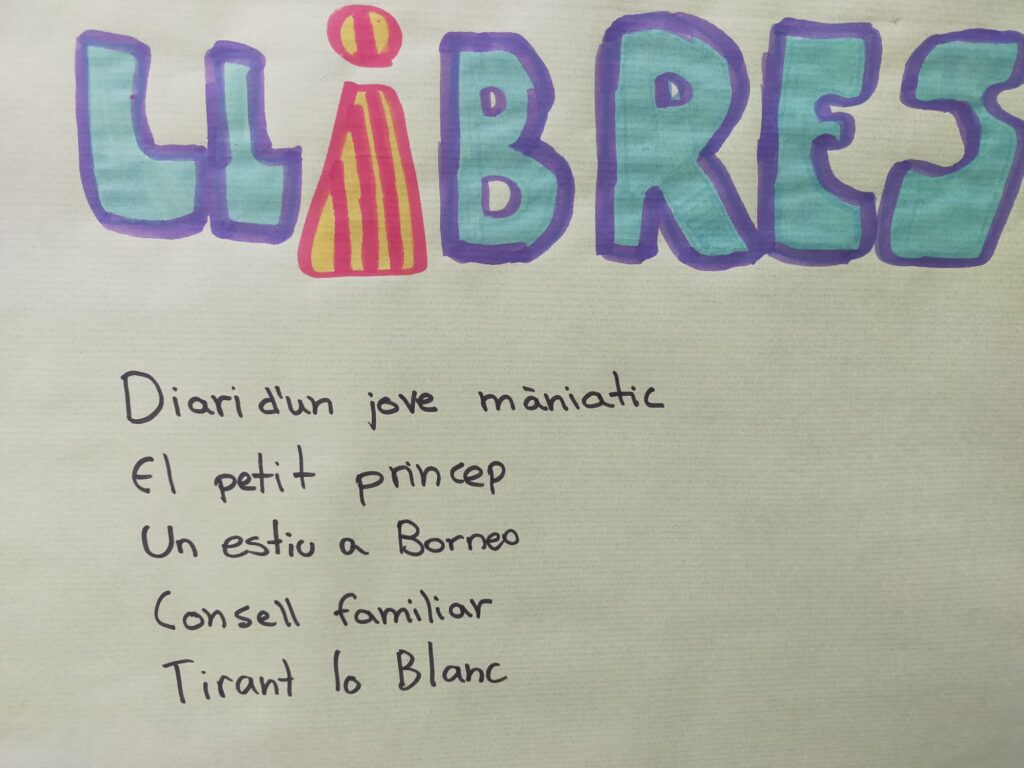 LLiBRES
Diari d'un jove màniatic
El petit princep
Un estiu a Borneo
Consell familiar
Tirant lo Blanc